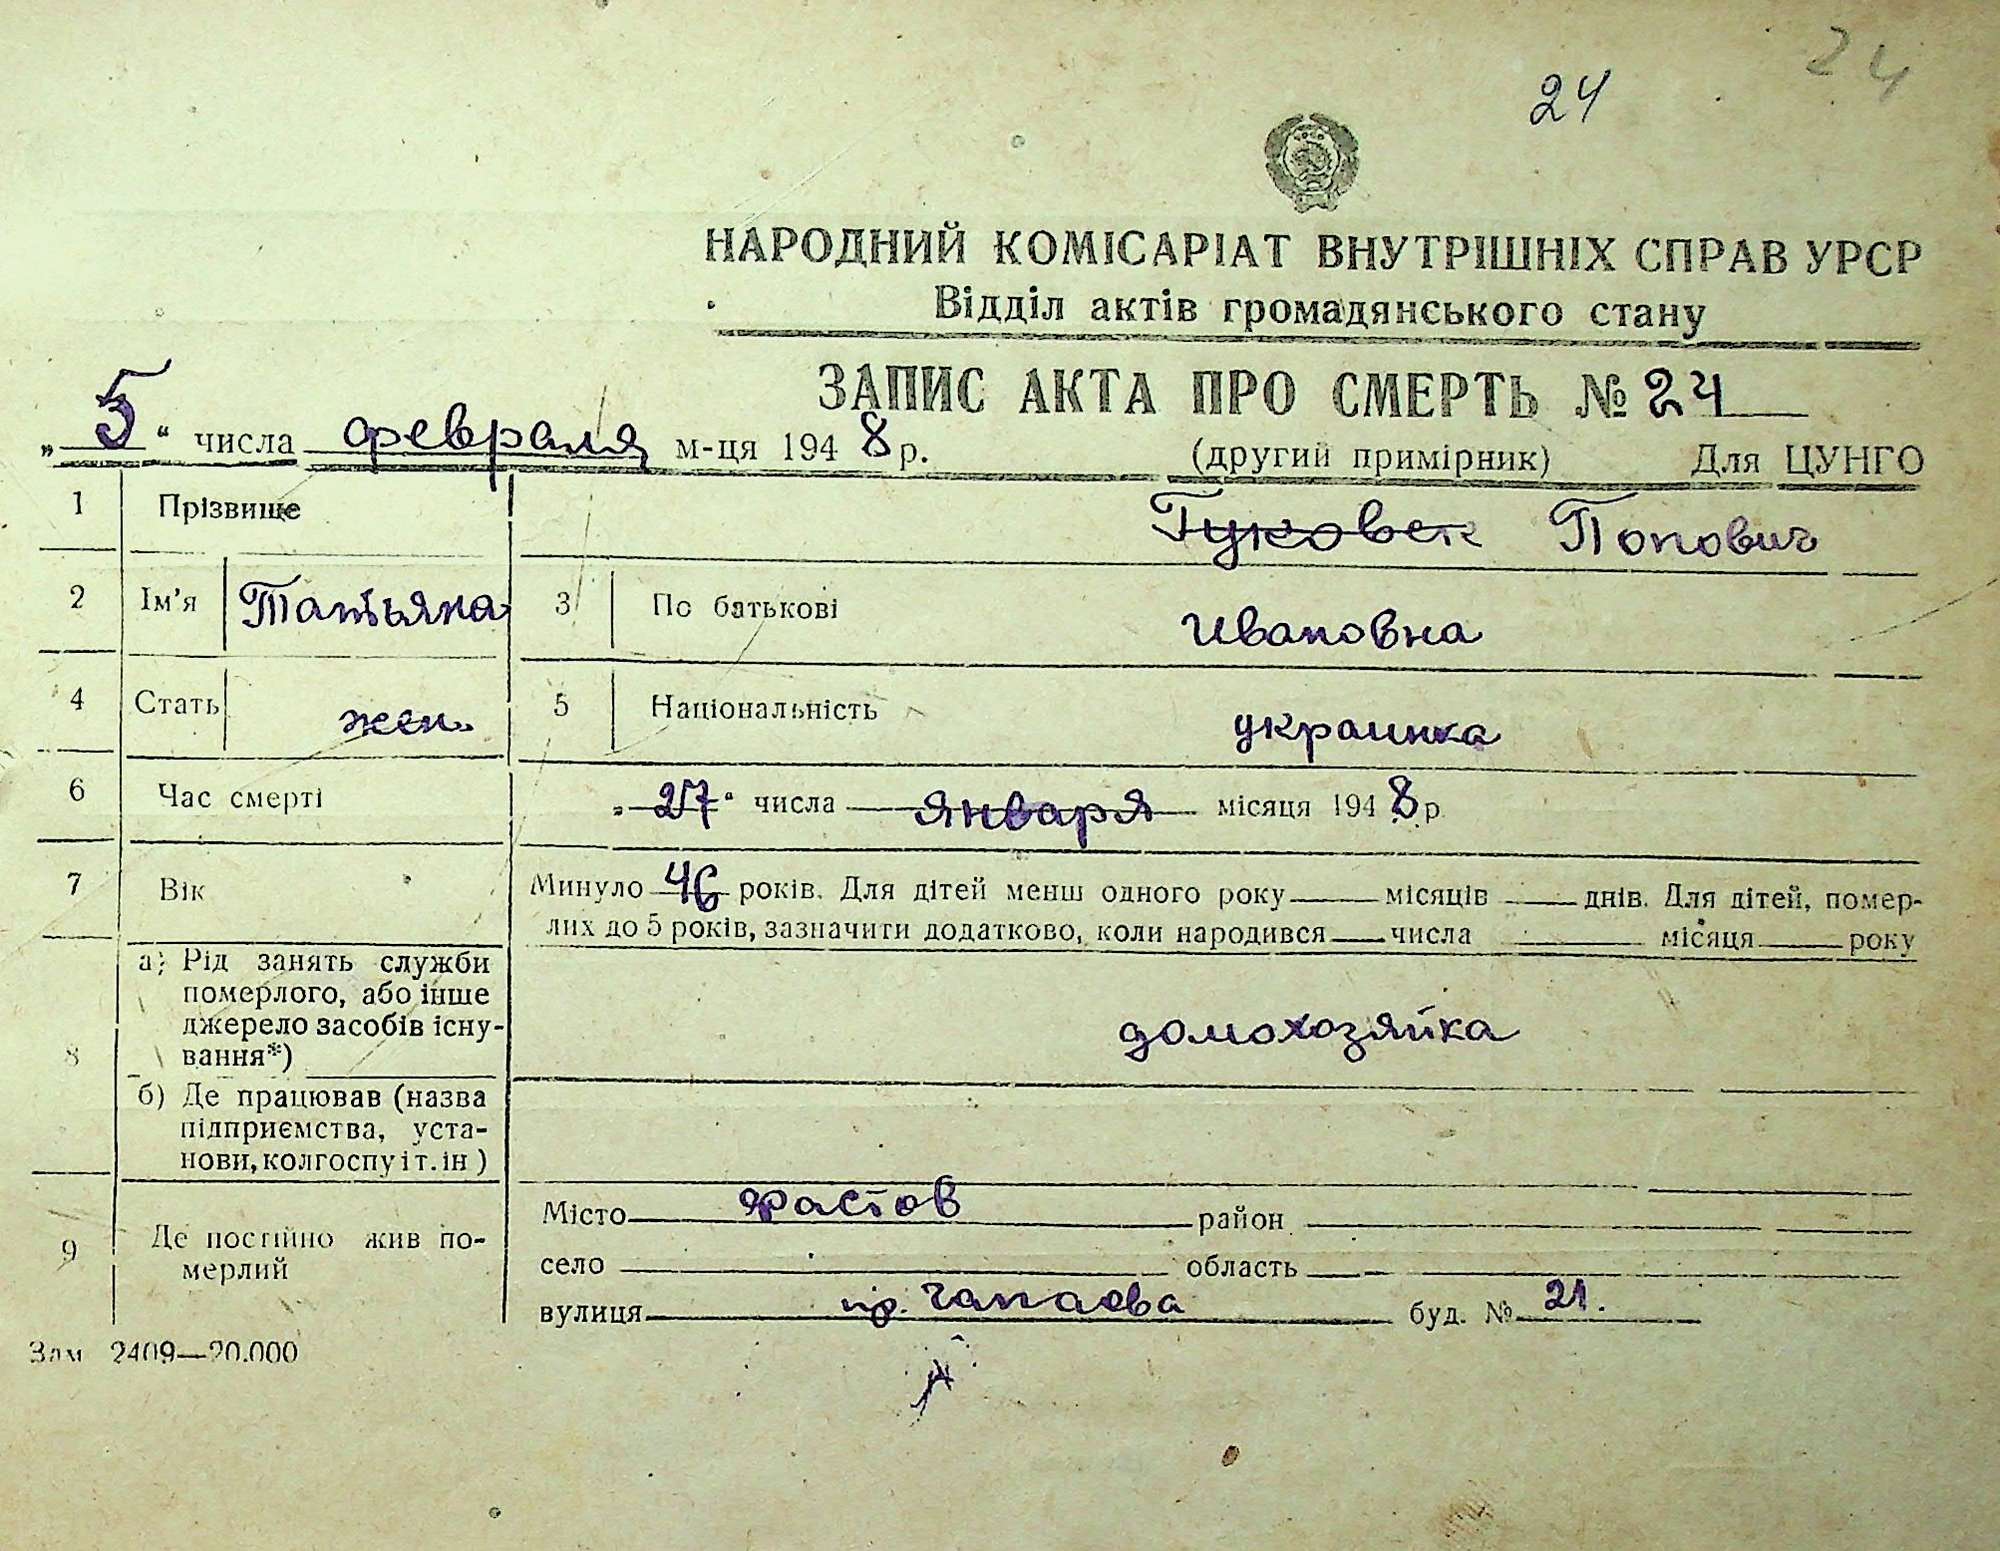 24
24
НАРОДНИЙ КОМІСАРІАТ ВНУТРІШНІХ СПРАВ УРСР
Відділ актів громадянського стану
ЗАПИС АКТА ПРО СМЕРТЬ № 24
„5“ числа февраля м-ця 1948 р.
(другий примірник) Для ЦУНГО
1 Прізвище Гуковск Попович
2 Ім'я Татьяна 3 По батькові Ивановна
4 Стать жен. 5 Національність украинка
6 Час смерті „27“ числа января місяця 1948 р.
7 Вік Минуло 46 років. Для дітей менш одного року місяців днів. Для дітей, помер-
лих до 5 років, зазначити додатково, коли народився числа місяця року
8 а) Рід занять служби
померлого, або інше
джерело засобів існу-
вання*) домохозяйка
б) Де працював (назва
підприємства, уста-
нови, колгоспу і т. ін)
9 Де постійно жив по-
мерлий
Місто Фастов район
село область
вулиця пр. Чапаева буд. № 21.
Зам 2409—20.000